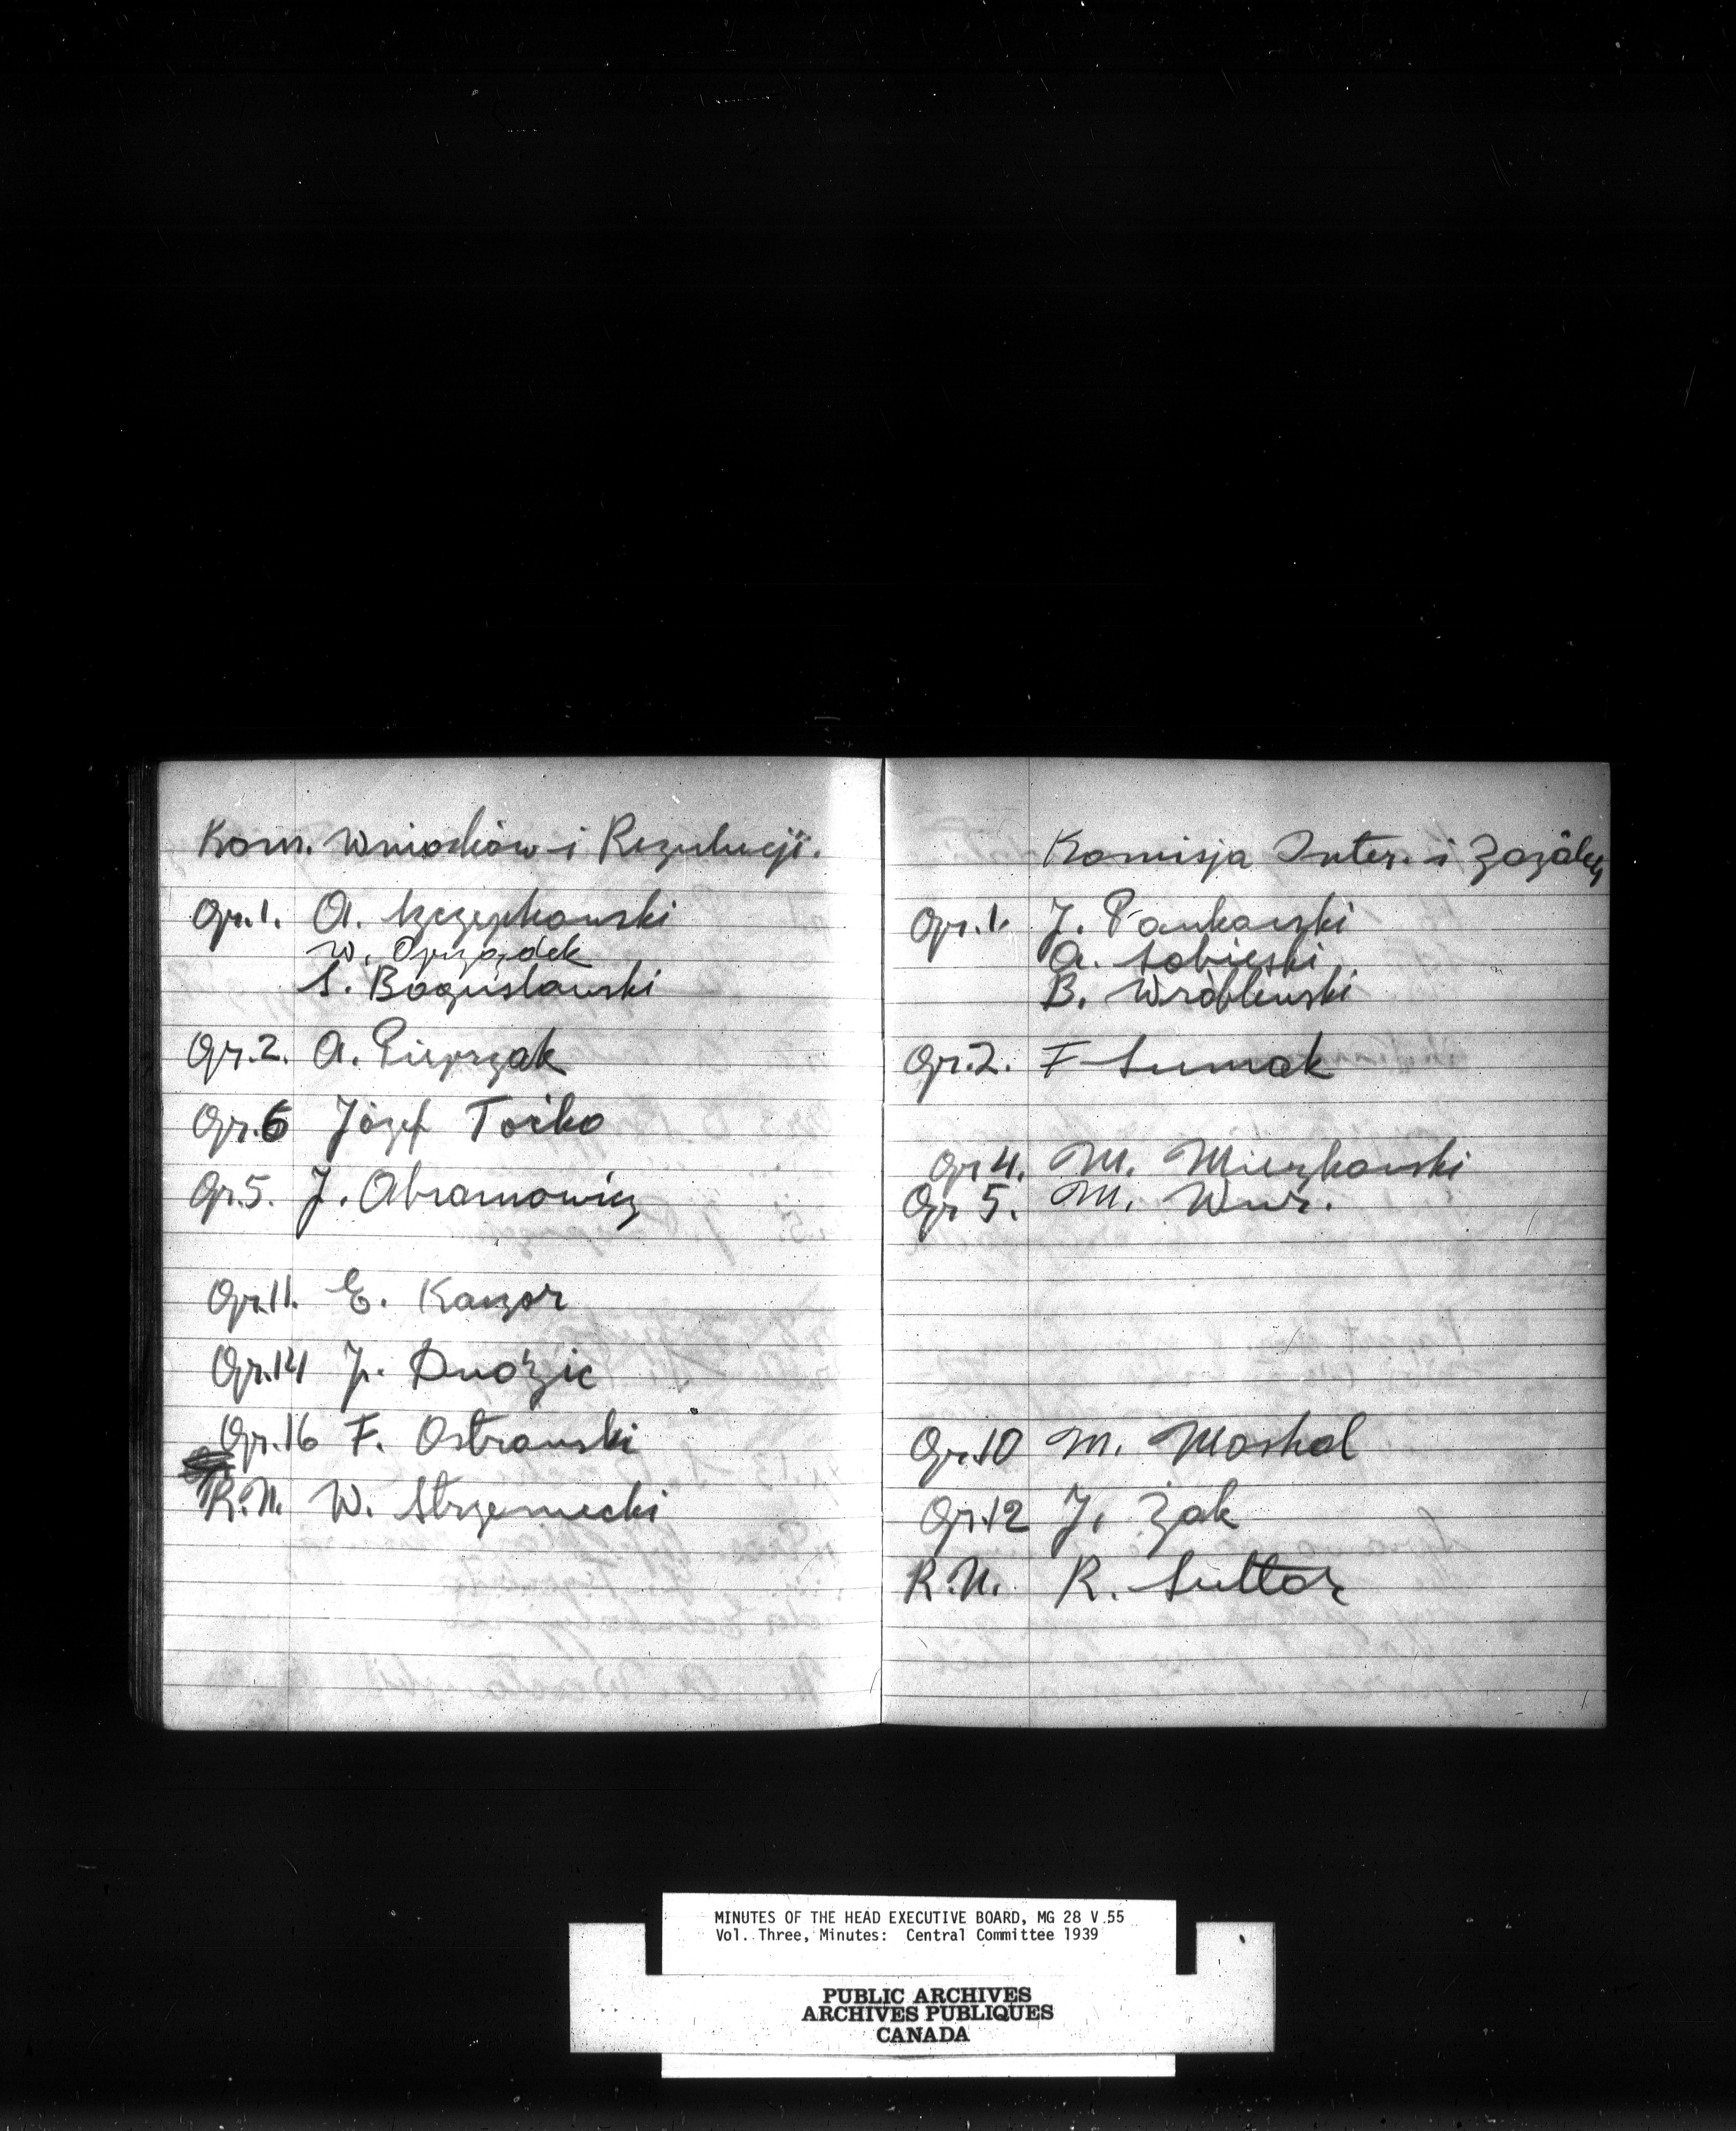 Kom. Wniosków i Rezulucji.
Gr.1. A. Szczepkowski
W. Oprządek
S. Bogusławski
Gr.2. A. Pieprzak
Gr.6 Józef Tośko
Gr.5. J. Abramowicz
Gr.11. E. Kaczor
Gr.14 J.
Gr.16 F. Ostrowski
R.N. W. Strzemecki
Komisja Inter. i
Gr.1. J. Pankowski
A. Sobieski
B. Wróblewski
Gr.2. F
Gr 4. M. Mieszkowski
Gr 5. M.
Gr.10 M. Moskal
Gr.12 J. Żak
R.N. R.
MINUTES OF THE HEAD EXECUTIVE BOARD, MG 28 V 55
Vol. Three, Minutes: Central Committee 1939
PUBLIC ARCHIVES
ARCHIVES PUBLIQUES
CANADA